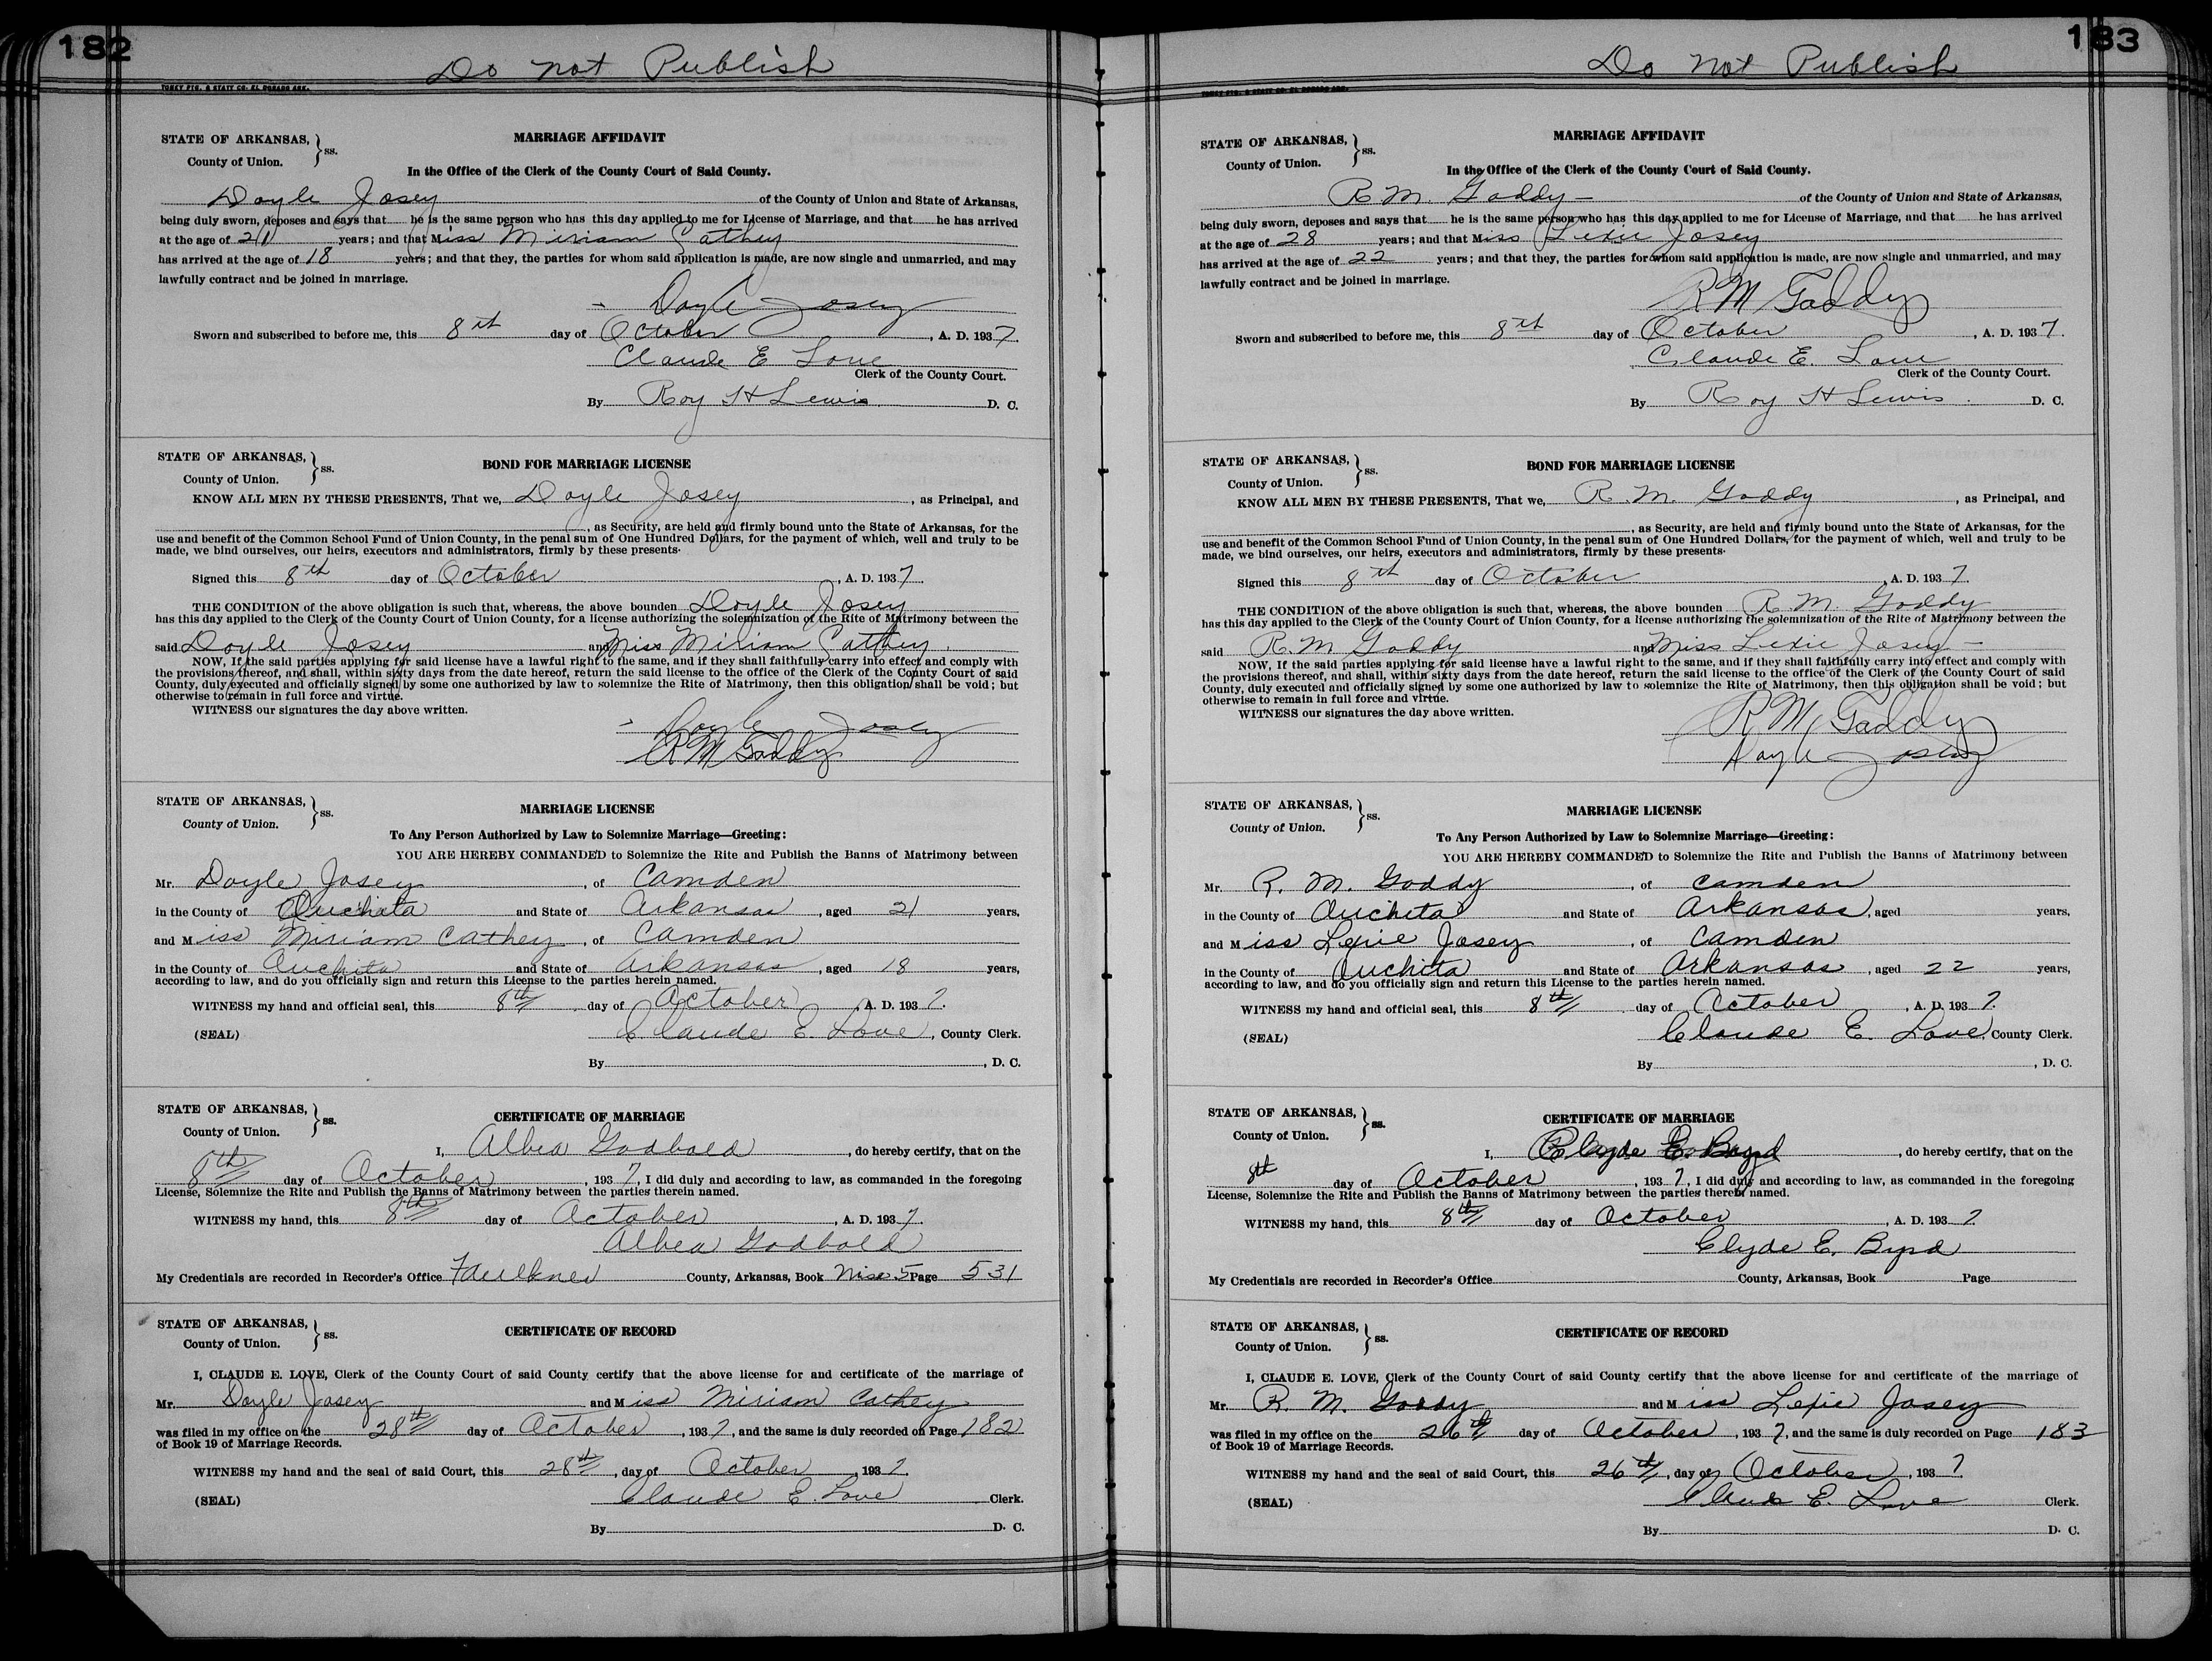 182
Do not Publish
TOREY PTG. & STATY CO. EL DORADO ARK.
STATE OF ARKANSAS,
County of Union. } ss.
MARRIAGE AFFIDAVIT
In the Office of the Clerk of the County Court of Said County.
Doyle Josey of the County of Union and State of Arkansas,
being duly sworn, deposes and says that he is the same person who has this day applied to me for License of Marriage, and that he has arrived
at the age of 21 years; and that Miss Miriam Cathey
has arrived at the age of 18 years; and that they, the parties for whom said application is made, are now single and unmarried, and may
lawfully contract and be joined in marriage.
Doyle Josey
Sworn and subscribed to before me, this 8th day of October, A. D. 1937.
Claude E Love
Clerk of the County Court.
By Roy H Lewis D. C.
STATE OF ARKANSAS,
County of Union. } ss.
BOND FOR MARRIAGE LICENSE
KNOW ALL MEN BY THESE PRESENTS, That we, Doyle Josey, as Principal, and
, as Security, are held and firmly bound unto the State of Arkansas, for the
use and benefit of the Common School Fund of Union County, in the penal sum of One Hundred Dollars, for the payment of which, well and truly to be
made, we bind ourselves, our heirs, executors and administrators, firmly by these presents.
Signed this 8th day of October, A. D. 1937.
THE CONDITION of the above obligation is such that, whereas, the above bounden Doyle Josey
has this day applied to the Clerk of the County Court of Union County, for a license authorizing the solemnization of the Rite of Matrimony between the
said Doyle Josey and Miss Miriam Cathey.
NOW, If the said parties applying for said license have a lawful right to the same, and if they shall faithfully carry into effect and comply with
the provisions thereof, and shall, within sixty days from the date hereof, return the said license to the office of the Clerk of the County Court of said
County, duly executed and officially signed by some one authorized by law to solemnize the Rite of Matrimony, then this obligation shall be void; but
otherwise to remain in full force and virtue.
WITNESS our signatures the day above written.
Doyle Josey
RM Gaddy
STATE OF ARKANSAS,
County of Union. } ss.
MARRIAGE LICENSE
To Any Person Authorized by Law to Solemnize Marriage—Greeting:
YOU ARE HEREBY COMMANDED to Solemnize the Rite and Publish the Banns of Matrimony between
Mr. Doyle Josey, of Camden
in the County of Ouchita and State of Arkansas, aged 21 years,
and Miss Miriam Cathey, of Camden
in the County of Ouchita and State of Arkansas, aged 18 years,
according to law, and do you officially sign and return this License to the parties herein named.
WITNESS my hand and official seal, this 8th day of October, A. D. 1937.
(SEAL) Claude E. Love, County Clerk.
By , D. C.
STATE OF ARKANSAS,
County of Union. } ss.
CERTIFICATE OF MARRIAGE
I, Albea Godbold, do hereby certify, that on the
8th day of October, 1937, I did duly and according to law, as commanded in the foregoing
License, Solemnize the Rite and Publish the Banns of Matrimony between the parties therein named.
WITNESS my hand, this 8th day of October, A. D. 1937.
Albea Godbold
My Credentials are recorded in Recorder's Office Faulkner County, Arkansas, Book Misc 5 Page 531
STATE OF ARKANSAS,
County of Union. } ss.
CERTIFICATE OF RECORD
I, CLAUDE E. LOVE, Clerk of the County Court of said County certify that the above license for and certificate of the marriage of
Mr. Doyle Josey and Miss Miriam Cathey
was filed in my office on the 28th day of October, 1937, and the same is duly recorded on Page 182
of Book 19 of Marriage Records.
WITNESS my hand and the seal of said Court, this 28th, day of October, 1937.
(SEAL) Claude E. Love Clerk.
By D. C.
183
Do not Publish
TOREY PTG. & STATY CO. EL DORADO ARK.
STATE OF ARKANSAS,
County of Union. } ss.
MARRIAGE AFFIDAVIT
In the Office of the Clerk of the County Court of Said County.
R. M. Gaddy of the County of Union and State of Arkansas,
being duly sworn, deposes and says that he is the same person who has this day applied to me for License of Marriage, and that he has arrived
at the age of 28 years; and that Miss Lexie Josey
has arrived at the age of 22 years; and that they, the parties for whom said application is made, are now single and unmarried, and may
lawfully contract and be joined in marriage.
RM Gaddy
Sworn and subscribed to before me, this 8th day of October, A. D. 1937.
Claude E. Love
Clerk of the County Court.
By Roy H Lewis. D. C.
STATE OF ARKANSAS,
County of Union. } ss.
BOND FOR MARRIAGE LICENSE
KNOW ALL MEN BY THESE PRESENTS, That we, R. M. Gaddy, as Principal, and
, as Security, are held and firmly bound unto the State of Arkansas, for the
use and benefit of the Common School Fund of Union County, in the penal sum of One Hundred Dollars, for the payment of which, well and truly to be
made, we bind ourselves, our heirs, executors and administrators, firmly by these presents.
Signed this 8th day of October, A. D. 1937.
THE CONDITION of the above obligation is such that, whereas, the above bounden R. M. Gaddy
has this day applied to the Clerk of the County Court of Union County, for a license authorizing the solemnization of the Rite of Matrimony between the
said R. M. Gaddy and Miss Lexie Josey
NOW, If the said parties applying for said license have a lawful right to the same, and if they shall faithfully carry into effect and comply with
the provisions thereof, and shall, within sixty days from the date hereof, return the said license to the office of the Clerk of the County Court of said
County, duly executed and officially signed by some one authorized by law to solemnize the Rite of Matrimony, then this obligation shall be void; but
otherwise to remain in full force and virtue.
WITNESS our signatures the day above written.
RM Gaddy
Doyle Josey
STATE OF ARKANSAS,
County of Union. } ss.
MARRIAGE LICENSE
To Any Person Authorized by Law to Solemnize Marriage—Greeting:
YOU ARE HEREBY COMMANDED to Solemnize the Rite and Publish the Banns of Matrimony between
Mr. R. M. Gaddy, of Camden
in the County of Ouchita and State of Arkansas, aged years,
and Miss Lexie Josey, of Camden
in the County of Ouchita and State of Arkansas, aged 22 years,
according to law, and do you officially sign and return this License to the parties herein named.
WITNESS my hand and official seal, this 8th day of October, A. D. 1937.
(SEAL) Claude E. Love, County Clerk.
By , D. C.
STATE OF ARKANSAS,
County of Union. } ss.
CERTIFICATE OF MARRIAGE
I, Clyde E. Byrd, do hereby certify, that on the
8th day of October, 1937, I did duly and according to law, as commanded in the foregoing
License, Solemnize the Rite and Publish the Banns of Matrimony between the parties therein named.
WITNESS my hand, this 8th day of October, A. D. 1937
Clyde E. Byrd
My Credentials are recorded in Recorder's Office County, Arkansas, Book Page
STATE OF ARKANSAS,
County of Union. } ss.
CERTIFICATE OF RECORD
I, CLAUDE E. LOVE, Clerk of the County Court of said County certify that the above license for and certificate of the marriage of
Mr. R. M. Gaddy and Miss Lexie Josey
was filed in my office on the 26th day of October, 1937, and the same is duly recorded on Page 183
of Book 19 of Marriage Records.
WITNESS my hand and the seal of said Court, this 26th, day of October, 1937
(SEAL) Claude E. Love Clerk.
By D. C.